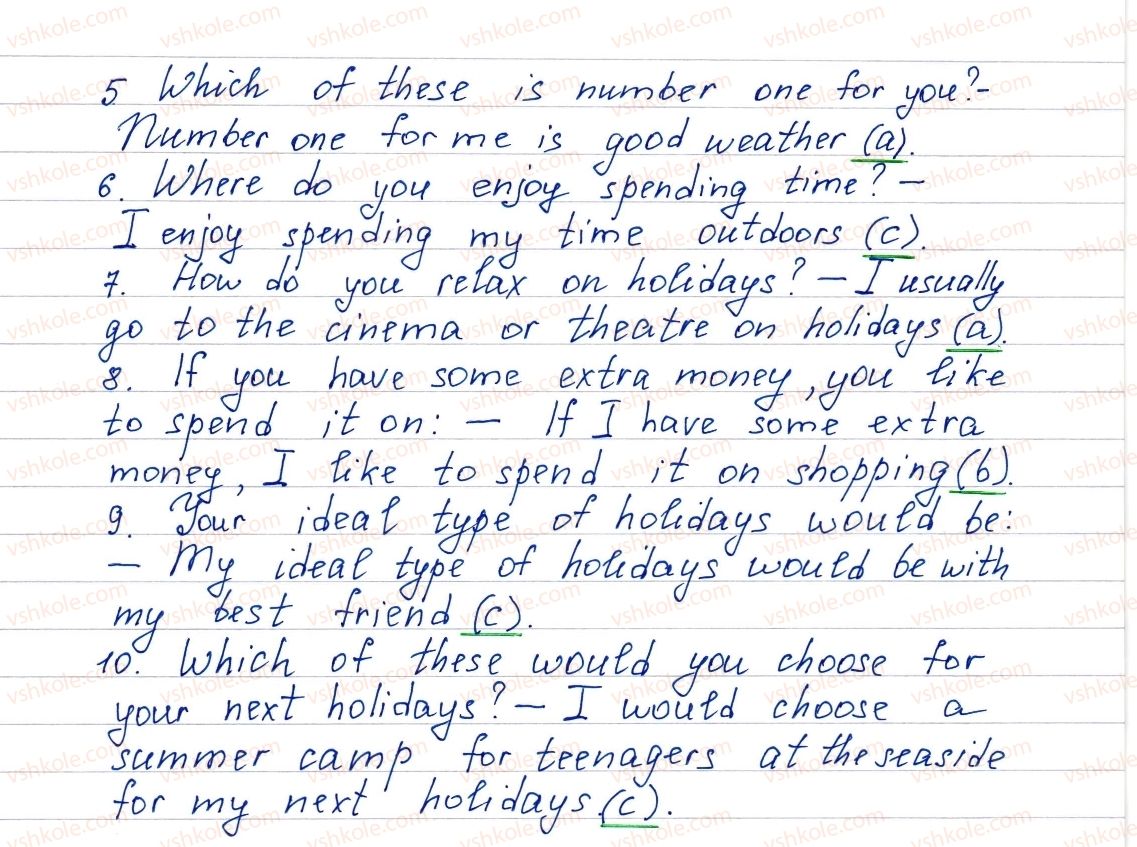 5 Which of these is number one for you?-
Number one for me is good weather (a).
6. Where do you enjoy spending time? –
I enjoy spending my time outdoors (c).
7. How do you relax on holidays? – I usually
go to the cinema or theatre on holidays (a).
8. If you have some extra money, you like
to spend it on: – If I have some extra
money, I like to spend it on shopping (b).
9. Your ideal type of holidays would be:
– My ideal type of holidays would be with
my best friend (c).
10. Which of these would you choose for
your next holidays? – I would choose a
summer camp for teenagers at the seaside
for my next holidays (c).
vshkole.com